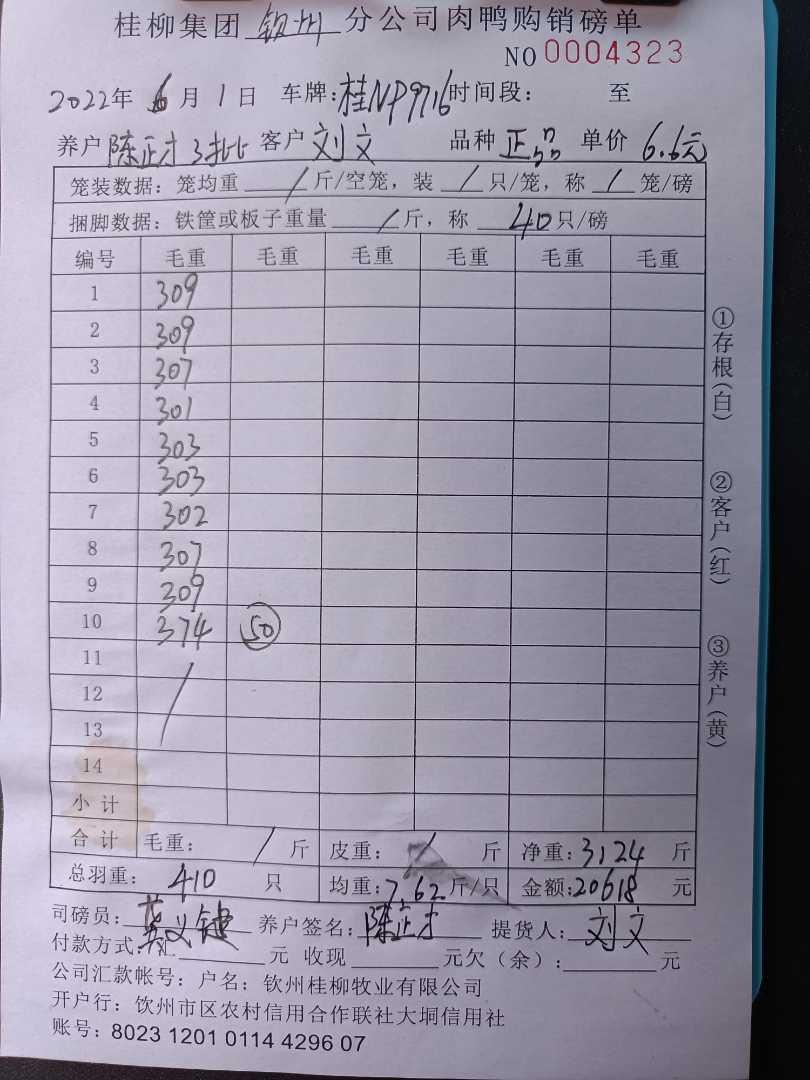 桂柳集团 钦州 分公司肉鸭购销磅单
NO 0004323
2022年 6月 1日 车牌:桂NP9716 时间段: 至
养户 陈正才 3批 客户 刘文 品种 正品 单价 6.6元
笼装数据: 笼均重 / 斤/空笼, 装 / 只/笼, 称 / 笼/磅
捆脚数据: 铁筐或板子重量 / 斤, 称 40只/磅
编号 毛重 毛重 毛重 毛重 毛重 毛重
1 309
2 309
3 307
4 301
5 303
6 303
7 302
8 307
9 309
10 374 50
11
12 /
13
14
小 计
合 计 毛重: / 斤 皮重: / 斤 净重:3124 斤
总羽重: 410 只 均重:7.62斤/只 金额:20618 元
司磅员: 义键 养户签名: 陈正才 提货人: 刘文
付款方式:汇 元 收现 元欠(余): 元
公司汇款帐号: 户名: 钦州桂柳牧业有限公司
开户行: 钦州市区农村信用合作联社大垌信用社
账号: 8023 1201 0114 4296 07
①存根(白)
②客户(红)
③养户(黄)